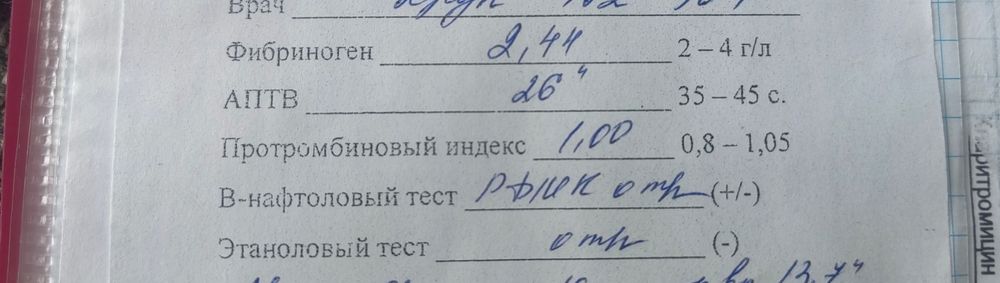 Врач
Фибриноген 2,44 2 – 4 г/л
АПТВ 26" 35 – 45 с.
Протромбиновый индекс 1,00 0,8 – 1,05
В-нафтоловый тест РФМК отр (+/-)
Этаноловый тест отр (-)
13,7"
Кларитромицин